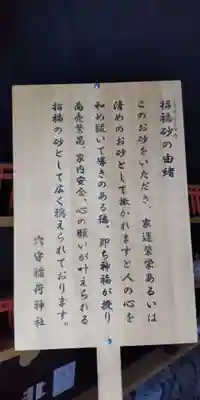 招福砂の由緒
このお砂をいただき、家運繁栄あるいは
清めのお砂として撒かれますと人の心を
和め賑いて導きのある徳、即ち神福が授り
商売繁昌、家内安全、心の願いが叶えられる
招福の砂として広く稱えられております。
穴守稲荷神社